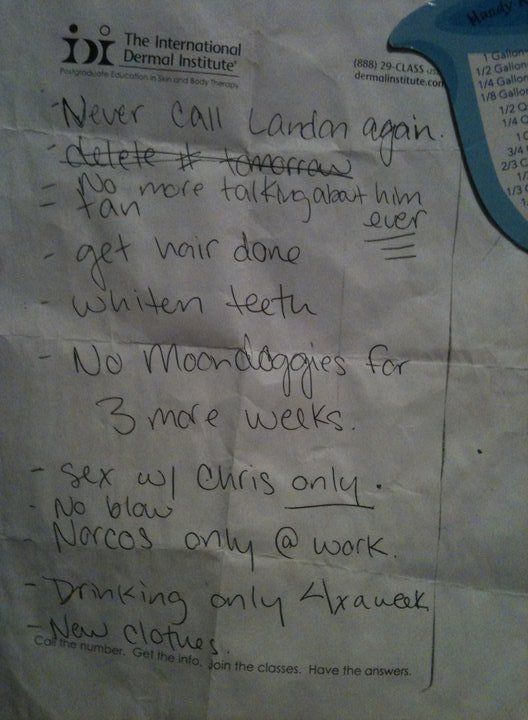 The International
Dermal Institute
Postgraduate Education in Skin and Body Therapy
(888) 29-CLASS
dermalinstitute.com
Handy
1 Gallon
1/2 Gallon
1/4 Gallon
1/8 Gallon
1/2 G
1/4 G
3/4
2/3 C
1/
1/3
-Never call Landon again.
- delete # tomorrow
- No more talking about him
ever
- tan
- get hair done
- whiten teeth
- No Moondoggies for
3 more weeks.
- sex w/ Chris only.
- No blow
- Norcos only @ work.
- Drinking only 4x a week
- New clothes.
Call the number. Get the info. Join the classes. Have the answers.